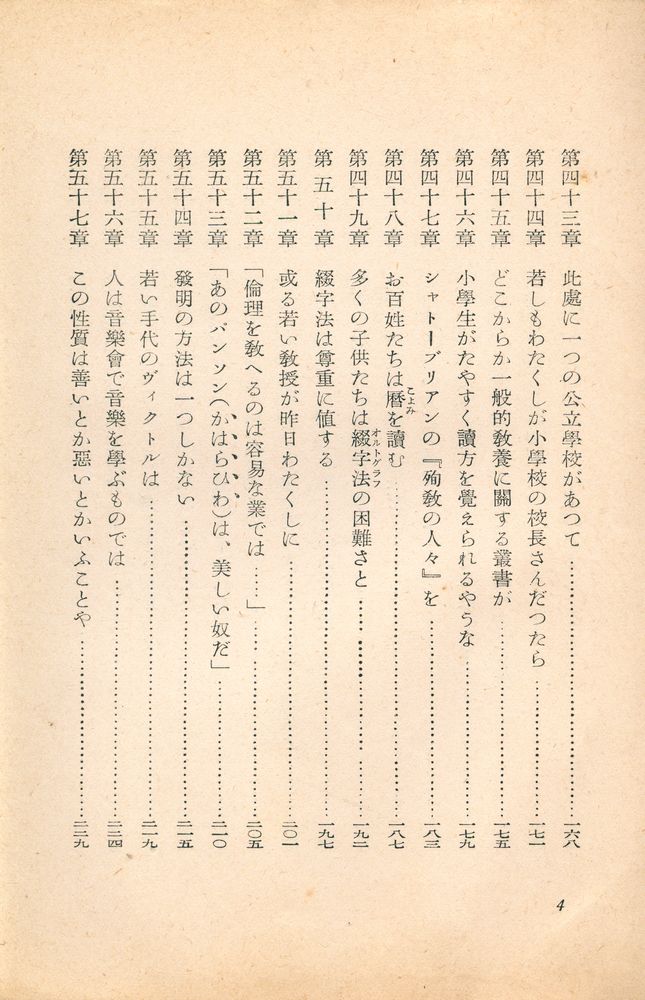 第四十三章 此處に一つの公立學校があつて……………………一六八
第四十四章 若しもわたくしが小學校の校長さんだつたら……………………一七一
第四十五章 どこからか一般的教養に關する叢書が……………………一七五
第四十六章 小學生がたやすく讀方を覺えられるやうな……………………一七九
第四十七章 シャトーブリアンの『殉教の人々』を……………………一八三
第四十八章 お百姓たちは暦を讀む……………………一八七
こよみ
第四十九章 多くの子供たちは綴字法の困難さと……………………一九二
オルトグラフ
第五十章 綴字法は尊重に値する……………………一九七
第五十一章 或る若い教授が昨日わたくしに……………………二〇一
第五十二章 「倫理を教へるのは容易な業では……」……………………二〇五
第五十三章 「あのバンソン(かはらひわ)は、美しい奴だ」……………………二一〇
第五十四章 發明の方法は一つしかない……………………二一五
第五十五章 若い手代のヴィクトルは……………………二一九
第五十六章 人は音樂會で音樂を學ぶものでは……………………二二四
第五十七章 この性質は善いとか惡いとかいふことや……………………二二九
4